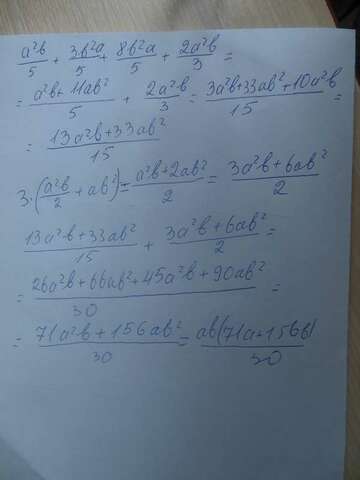 a²b/5 + 3b²a/5 + 8b²a/5 + 2a²b/3 =
= (a²b + 11ab²)/5 + 2a²b/3 = (3a²b + 33ab² + 10a²b)/15 =
= (13a²b + 33ab²)/15
3·(a²b/2 + ab²) = (a²b + 2ab²)/2 = (3a²b + 6ab²)/2
(13a²b + 33ab²)/15 + (3a²b + 6ab²)/2 =
= (26a²b + 66ab² + 45a²b + 90ab²)/30 =
= (71a²b + 156ab²)/30 = ab(71a + 156b)/30